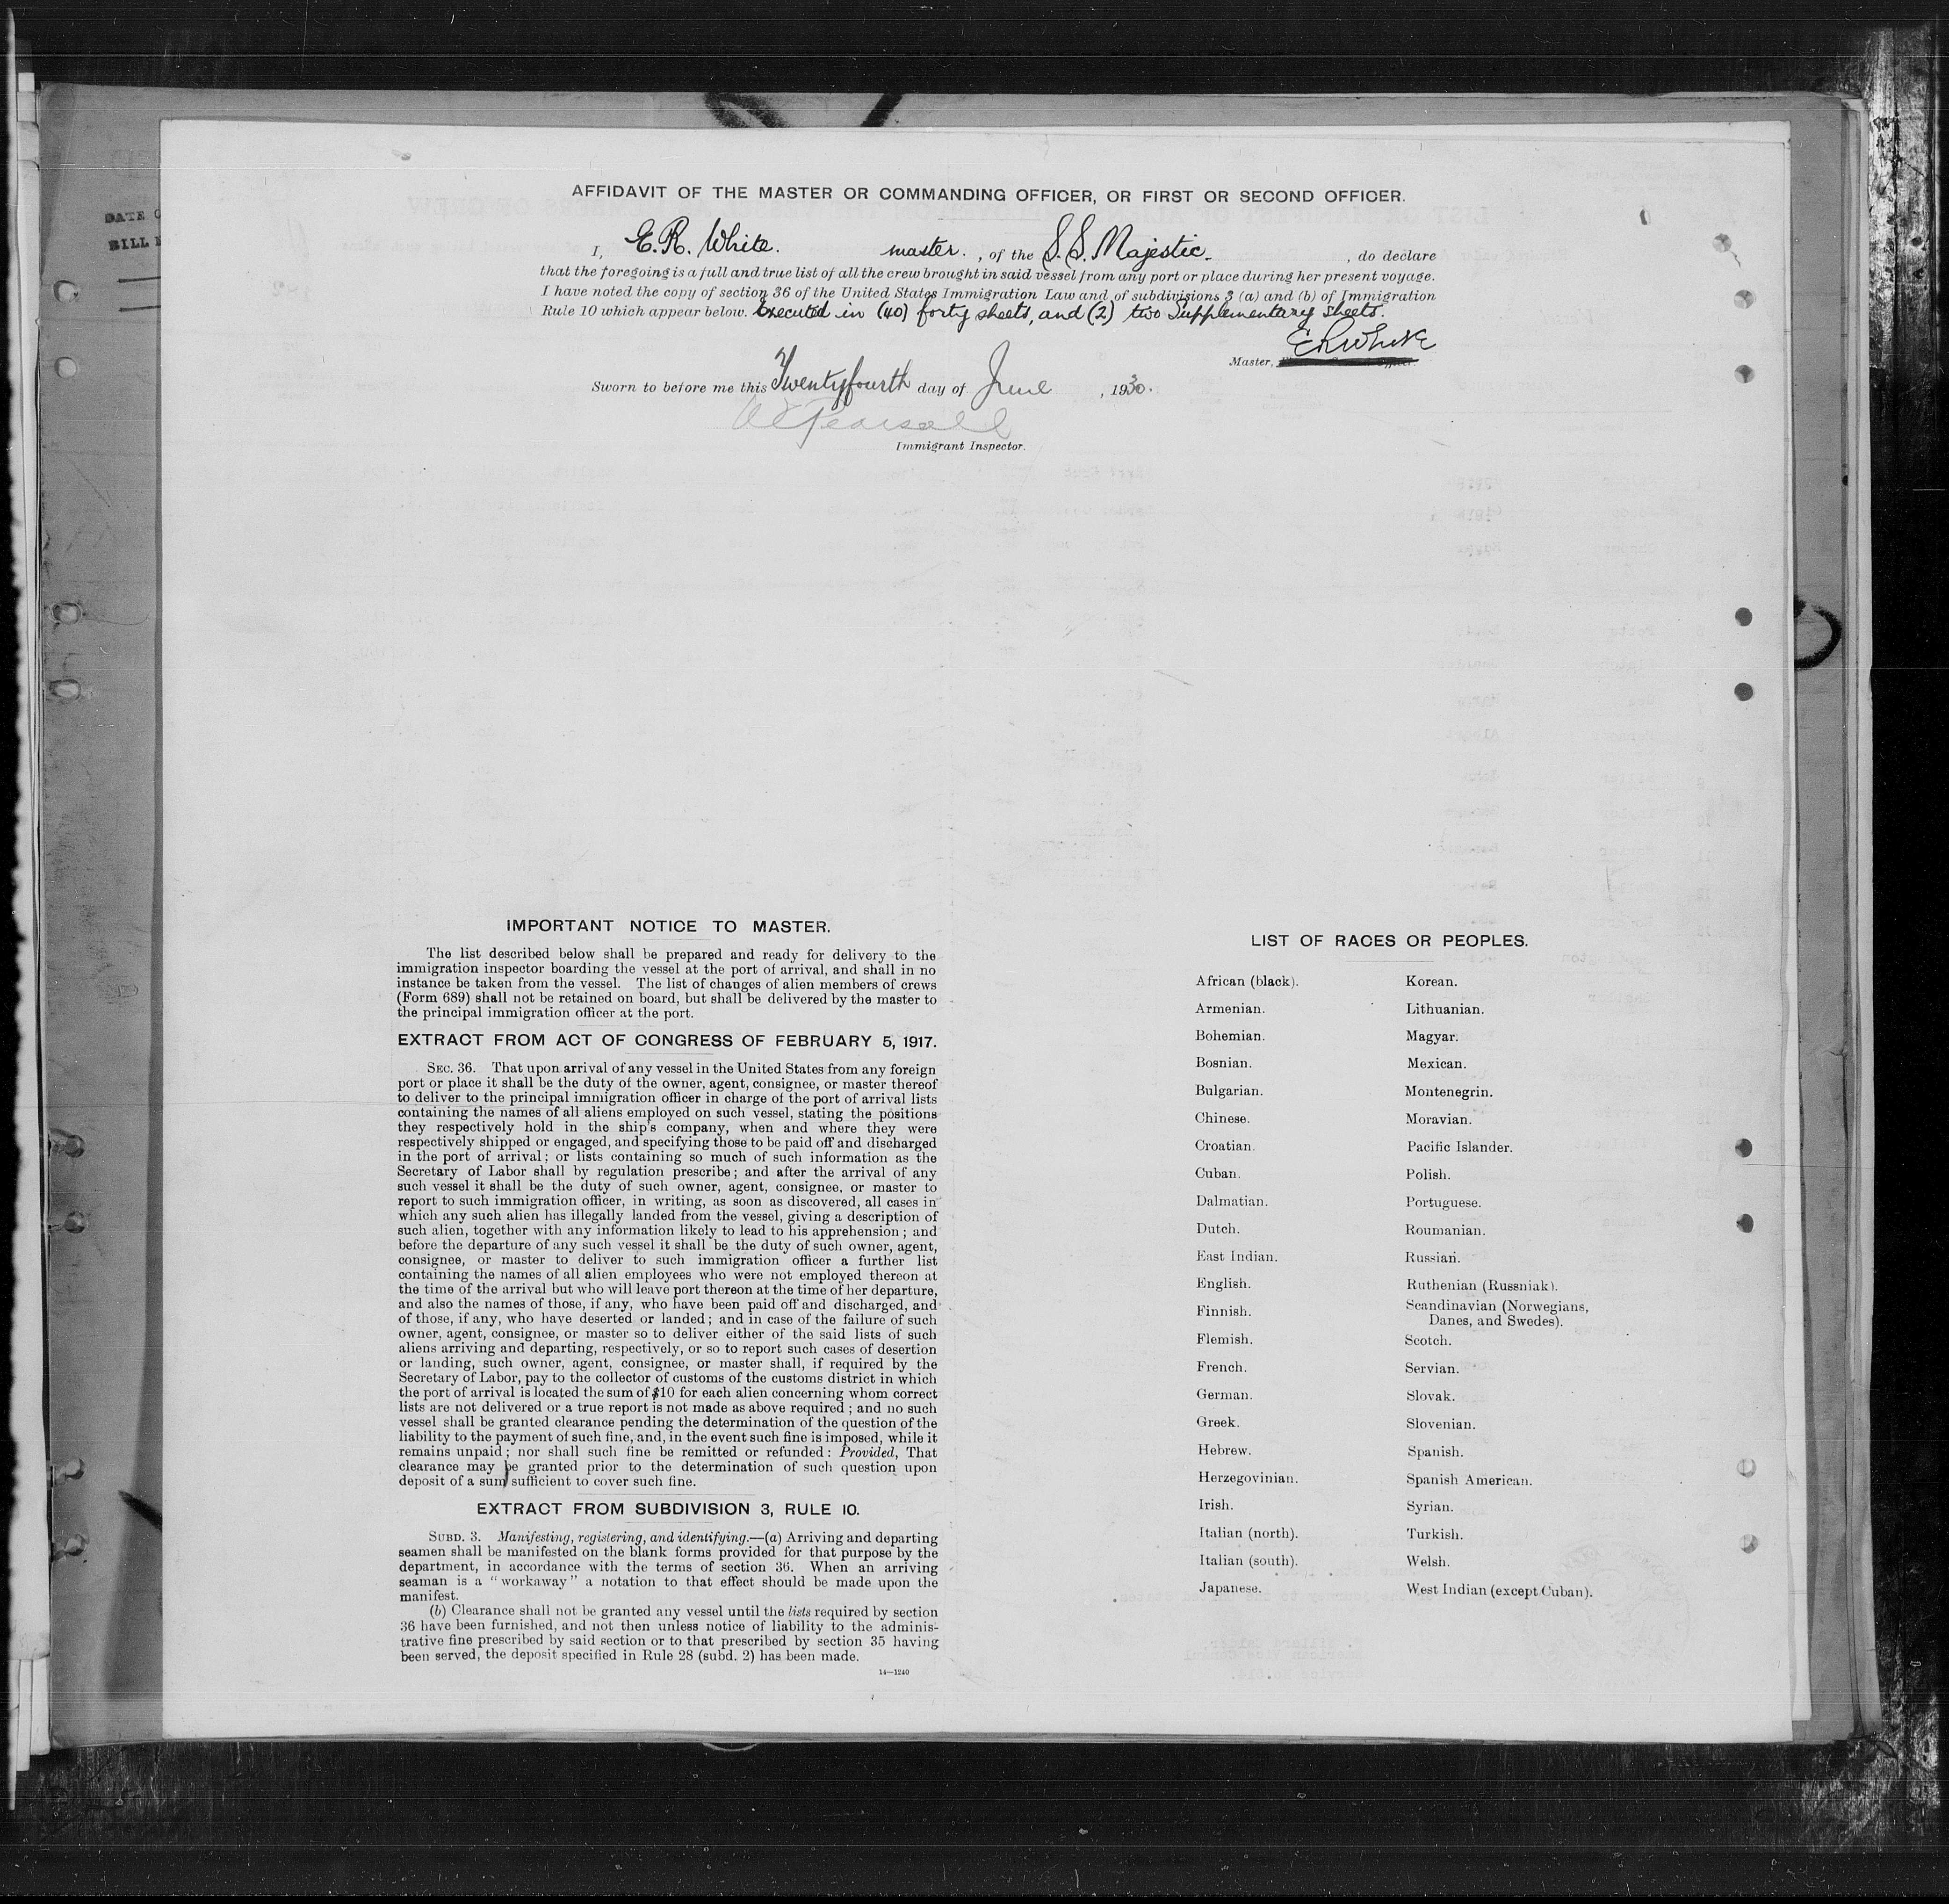 DATE
BILL
AFFIDAVIT OF THE MASTER OR COMMANDING OFFICER, OR FIRST OR SECOND OFFICER.
I, E. R. White. master. , of the S. S. Majestic. , do declare
that the foregoing is a full and true list of all the crew brought in said vessel from any port or place during her present voyage.
I have noted the copy of section 36 of the United States Immigration Law and of subdivisions 3 (a) and (b) of Immigration
Rule 10 which appear below. Executed in (40) forty sheets, and (2) two Supplementary Sheets.
E R White
Master,
Sworn to before me this Twentyfourth day of June , 1930.
Pearsall
Immigrant Inspector.
IMPORTANT NOTICE TO MASTER.
The list described below shall be prepared and ready for delivery to the
immigration inspector boarding the vessel at the port of arrival, and shall in no
instance be taken from the vessel. The list of changes of alien members of crews
(Form 689) shall not be retained on board, but shall be delivered by the master to
the principal immigration officer at the port.
EXTRACT FROM ACT OF CONGRESS OF FEBRUARY 5, 1917.
SEC. 36. That upon arrival of any vessel in the United States from any foreign
port or place it shall be the duty of the owner, agent, consignee, or master thereof
to deliver to the principal immigration officer in charge of the port of arrival lists
containing the names of all aliens employed on such vessel, stating the positions
they respectively hold in the ship's company, when and where they were
respectively shipped or engaged, and specifying those to be paid off and discharged
in the port of arrival; or lists containing so much of such information as the
Secretary of Labor shall by regulation prescribe; and after the arrival of any
such vessel it shall be the duty of such owner, agent, consignee, or master to
report to such immigration officer, in writing, as soon as discovered, all cases in
which any such alien has illegally landed from the vessel, giving a description of
such alien, together with any information likely to lead to his apprehension; and
before the departure of any such vessel it shall be the duty of such owner, agent,
consignee, or master to deliver to such immigration officer a further list
containing the names of all alien employees who were not employed thereon at
the time of the arrival but who will leave port thereon at the time of her departure,
and also the names of those, if any, who have been paid off and discharged, and
of those, if any, who have deserted or landed; and in case of the failure of such
owner, agent, consignee, or master so to deliver either of the said lists of such
aliens arriving and departing, respectively, or so to report such cases of desertion
or landing, such owner, agent, consignee, or master shall, if required by the
Secretary of Labor, pay to the collector of customs of the customs district in which
the port of arrival is located the sum of $10 for each alien concerning whom correct
lists are not delivered or a true report is not made as above required; and no such
vessel shall be granted clearance pending the determination of the question of the
liability to the payment of such fine, and, in the event such fine is imposed, while it
remains unpaid; nor shall such fine be remitted or refunded: Provided, That
clearance may be granted prior to the determination of such question upon
deposit of a sum sufficient to cover such fine.
EXTRACT FROM SUBDIVISION 3, RULE 10.
SUBD. 3. Manifesting, registering, and identifying.—(a) Arriving and departing
seamen shall be manifested on the blank forms provided for that purpose by the
department, in accordance with the terms of section 36. When an arriving
seaman is a "workaway" a notation to that effect should be made upon the
manifest.
(b) Clearance shall not be granted any vessel until the lists required by section
36 have been furnished, and not then unless notice of liability to the adminis-
trative fine prescribed by said section or to that prescribed by section 35 having
been served, the deposit specified in Rule 28 (subd. 2) has been made.
14—1240
LIST OF RACES OR PEOPLES.
African (black).
Armenian.
Bohemian.
Bosnian.
Bulgarian.
Chinese.
Croatian.
Cuban.
Dalmatian.
Dutch.
East Indian.
English.
Finnish.
Flemish.
French.
German.
Greek.
Hebrew.
Herzegovinian.
Irish.
Italian (north).
Italian (south).
Japanese.
Korean.
Lithuanian.
Magyar.
Mexican.
Montenegrin.
Moravian.
Pacific Islander.
Polish.
Portuguese.
Roumanian.
Russian.
Ruthenian (Russniak).
Scandinavian (Norwegians,
Danes, and Swedes).
Scotch.
Servian.
Slovak.
Slovenian.
Spanish.
Spanish American.
Syrian.
Turkish.
Welsh.
West Indian (except Cuban).